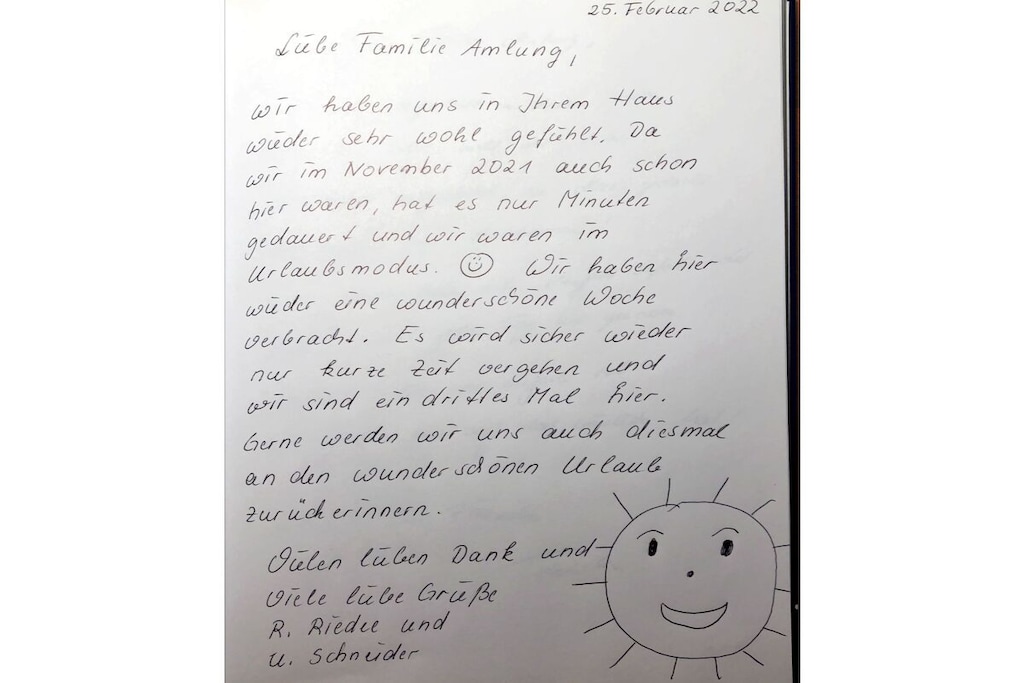 25. Februar 2022
Liebe Familie Amlung,
wir haben uns in Ihrem Haus
wieder sehr wohl gefühlt. Da
wir im November 2021 auch schon
hier waren, hat es nur Minuten
gedauert und wir waren im
Urlaubsmodus. ☺ Wir haben hier
wieder eine wunderschöne Woche
verbracht. Es wird sicher wieder
nur kurze Zeit vergehen und
wir sind ein drittes Mal hier.
Gerne werden wir uns auch diesmal
an den wunderschönen Urlaub
zurückerinnern.
Vielen lieben Dank und
Viele liebe Grüße
R. und
U. Schneider